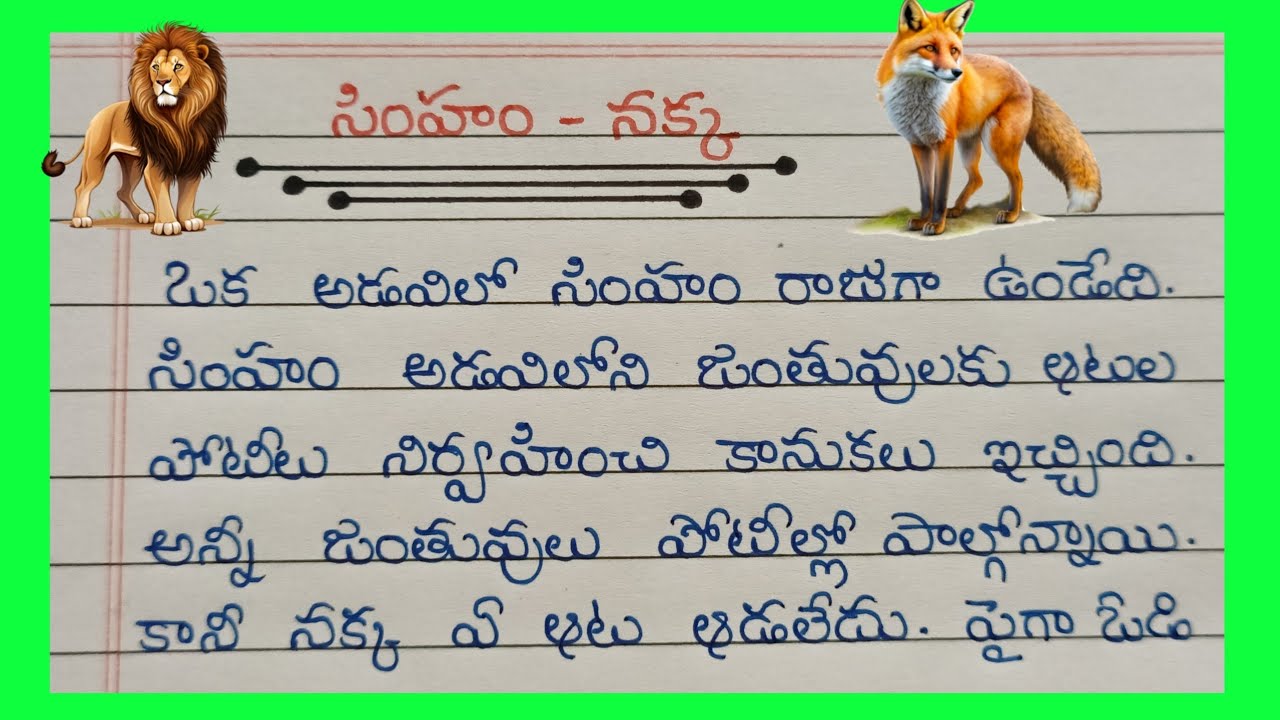 సింహం - నక్క
ఒక అడవిలో సింహం రాజుగా ఉండేది.
సింహం అడవిలోని జంతువులకు ఆటల
పోటీలు నిర్వహించి కానుకలు ఇచ్చింది.
అన్నీ జంతువులు పోటీల్లో పాల్గోన్నాయి.
కానీ నక్క ఏ ఆటు ఆడలేదు. పైగా ఓడి